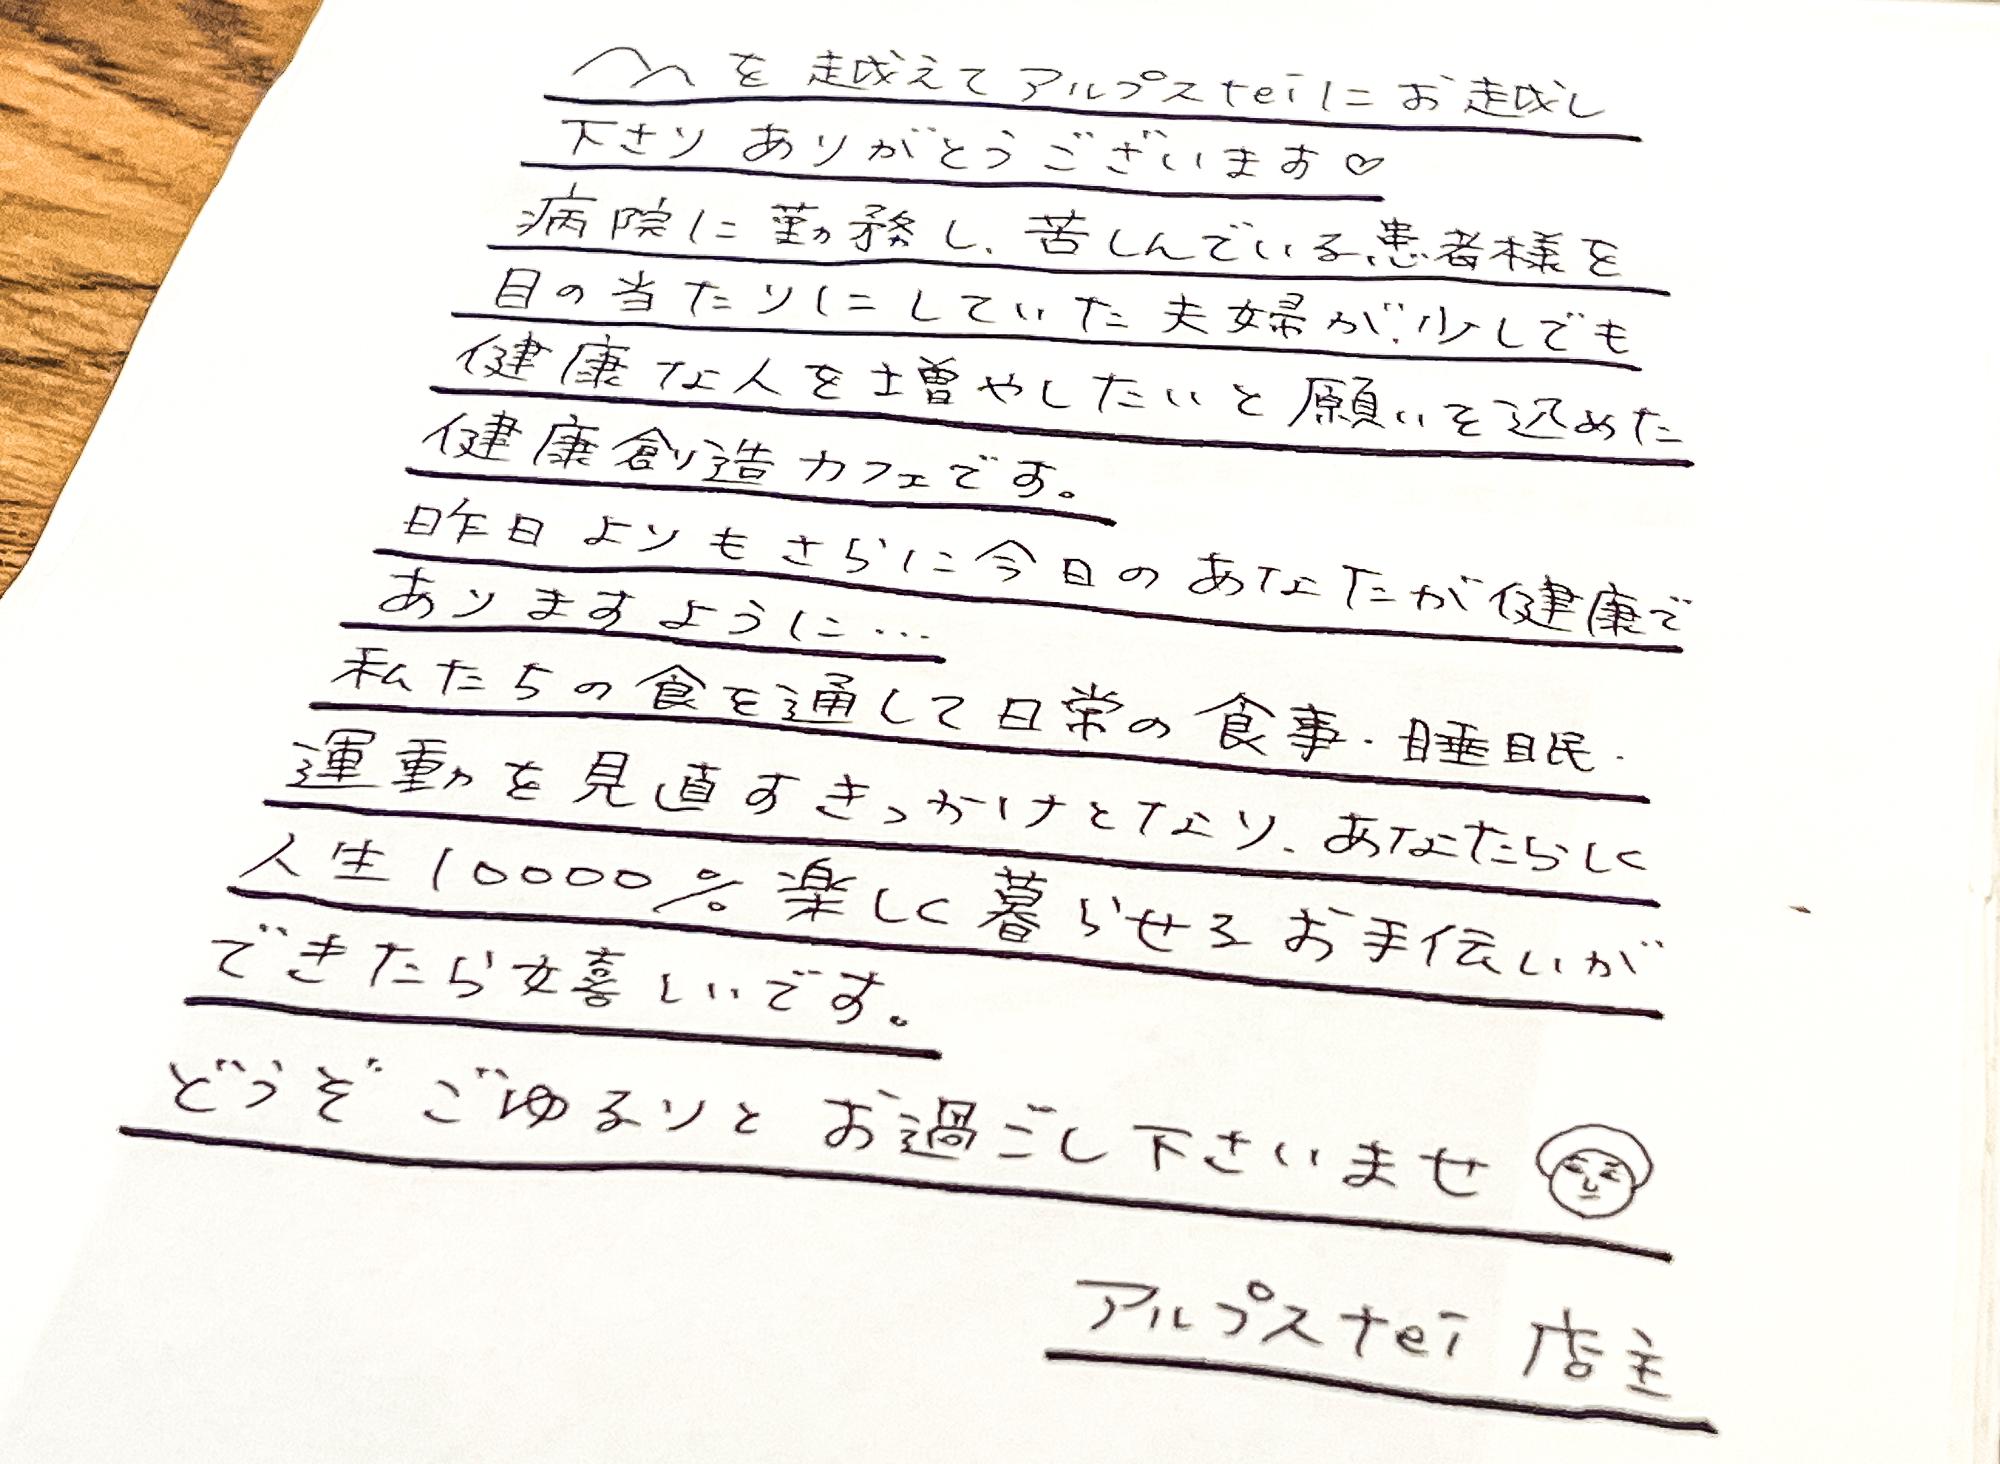 を越えてアルプスteiにお越し
下さりありがとうございます♡
病院に勤務し、苦しんでいる患者様を
目の当たりにしていた夫婦が、少しでも
健康な人を増やしたいと願いを込めた
健康創造カフェです。
昨日よりもさらに今日のあなたが健康で
ありますように…
私たちの食を通して日常の食事・睡眠・
運動を見直すきっかけとなり、あなたらしく
人生10000%楽しく暮らせるお手伝いが
できたら嬉しいです。
どうぞごゆるりとお過ごし下さいませ
アルプスtei 店主